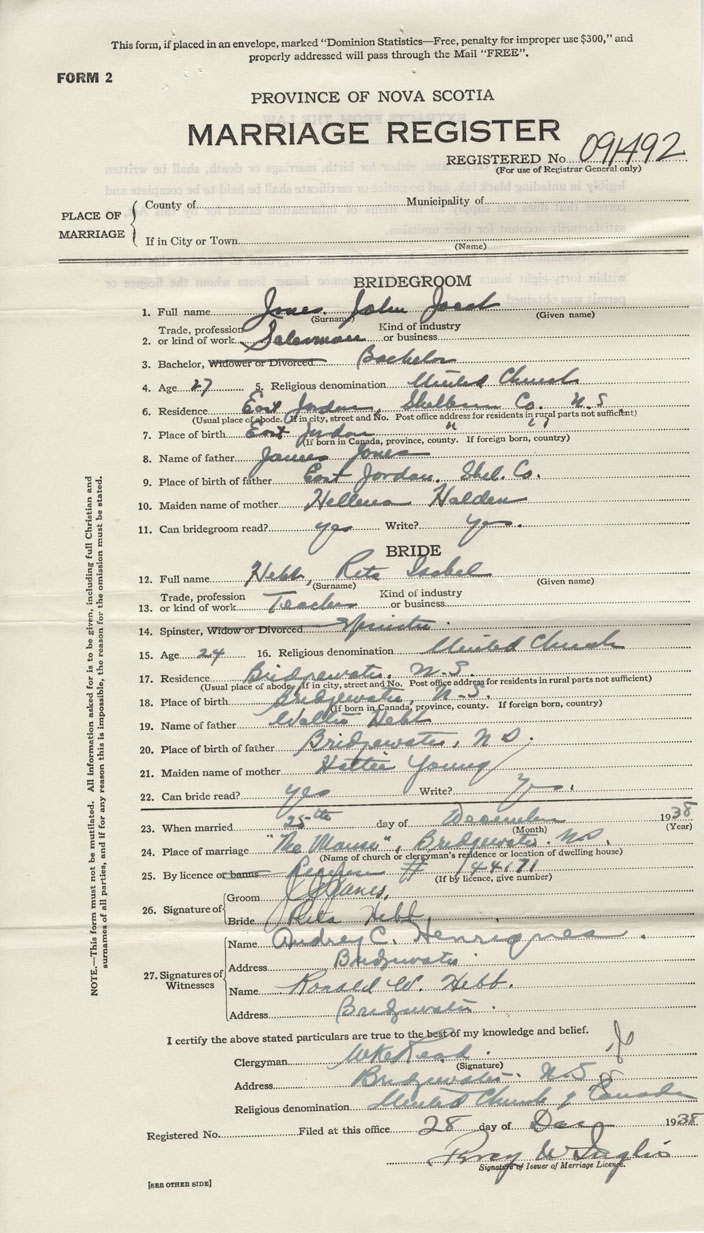 This form, if placed in an envelope, marked "Dominion Statistics—Free, penalty for improper use $300," and
properly addressed will pass through the Mail "FREE".
FORM 2
PROVINCE OF NOVA SCOTIA
MARRIAGE REGISTER
REGISTERED No. 091492
(For use of Registrar General only)
PLACE OF MARRIAGE
County of Municipality of
If in City or Town
(Name)
BRIDEGROOM
1. Full name Jones, John Jacob
(Surname) (Given name)
2. Trade, profession or kind of work Salesman Kind of industry or business
3. Bachelor, Widower or Divorced Bachelor
4. Age 27 5. Religious denomination United Church
6. Residence East Jordan, Shelburne Co. N.S.
(Usual place of abode. If in city, street and No. Post office address for residents in rural parts not sufficient)
7. Place of birth East Jordan " "
(If born in Canada, province, county. If foreign born, country)
8. Name of father James Jones
9. Place of birth of father East Jordan, Shel. Co.
10. Maiden name of mother Hellena Holden
11. Can bridegroom read? yes Write? Yes.
BRIDE
12. Full name Hebb, Rita Isabel
(Surname) (Given name)
13. Trade, profession or kind of work Teacher Kind of industry or business
14. Spinster, Widow or Divorced Spinster.
15. Age 24 16. Religious denomination United Church
17. Residence Bridgewater, N.S.
(Usual place of abode. If in city, street and No. Post office address for residents in rural parts not sufficient)
18. Place of birth Bridgewater, N.S.
(If born in Canada, province, county. If foreign born, country)
19. Name of father Wallis Hebb
20. Place of birth of father Bridgewater, N.S.
21. Maiden name of mother Hattie Young
22. Can bride read? yes Write? Yes.
23. When married 25th day of December 1938
(Month) (Year)
24. Place of marriage "The Manse", Bridgewater. N.S.
(Name of church or clergyman's residence or location of dwelling house)
25. By licence or banns # 144171
(If by licence, give number)
26. Signature of
Groom J J Jones,
Bride Rita Hebb.
27. Signatures of Witnesses
Name Audrey C. Henriques.
Address Bridgewater.
Name Ronald W. Hebb.
Address Bridgewater.
I certify the above stated particulars are true to the best of my knowledge and belief.
Clergyman
(Signature)
Address Bridgewater N.S.
Religious denomination United Church of Canada
Registered No. Filed at this office 28 day of Dec 1938
Percy W Inglis
Signature of Issuer of Marriage Licence.
[SEE OTHER SIDE]
NOTE.—This form must not be mutilated. All information asked for is to be given, including full Christian and
surnames of all parties, and if for any reason this is impossible, the reason for the omission must be stated.